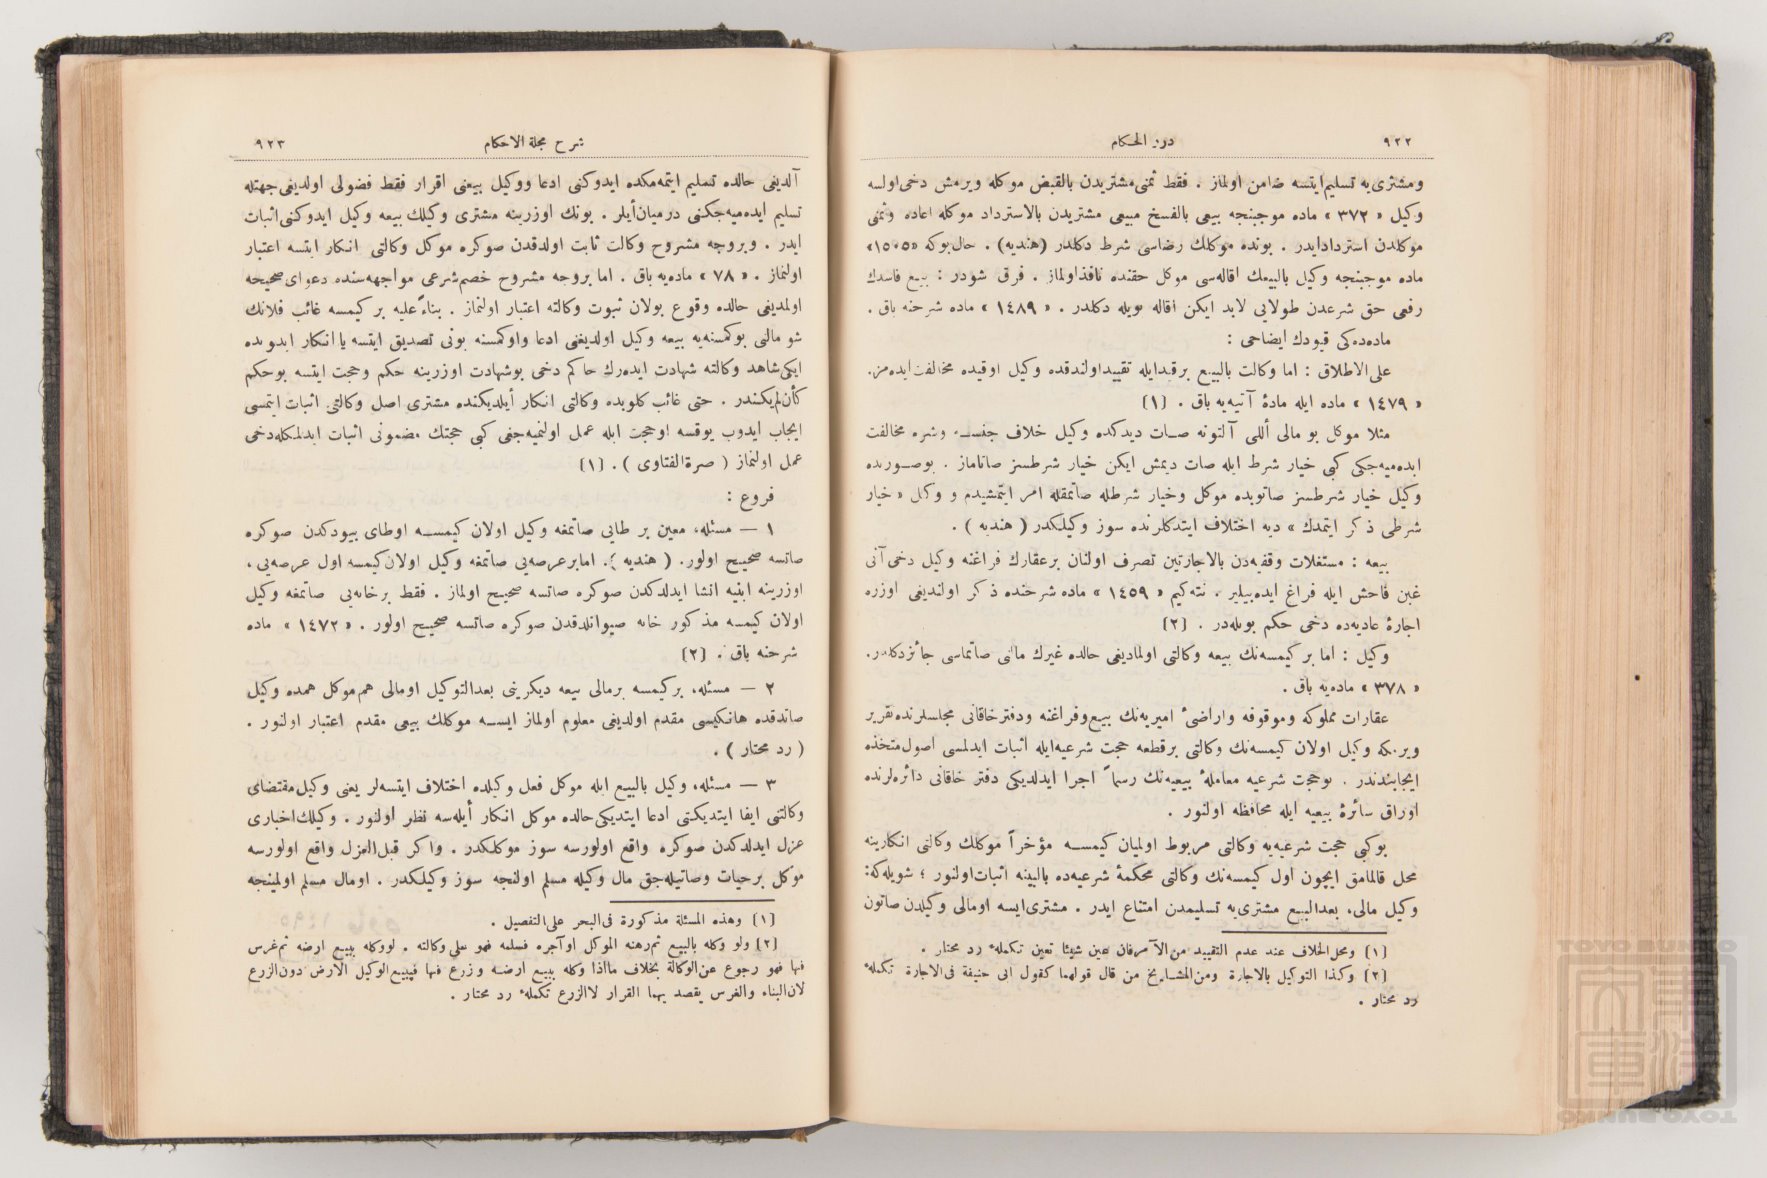 ٩٢٢
درر الحكام
ومشترى‌يه تسليم ايتسه ضامن اولماز . فقط ثمنى مشتريدن بالقبض موكله ويرمش دخى اولسه
وكيل « ٣٧٢ » ماده موجبنجه بيعى بالفسخ مبيعى مشتريدن بالاسترداد موكله اعاده وثمنى
موكلدن استرداد ايدر . بونده موكلك رضاسى شرط دكلدر (هنديه) . حال بوكه «١٥٠٥»
ماده موجبنجه وكيل بالبيعك اقاله‌سى موكل حقنده نافذ اولماز . فرق شودر : بيع فاسدك
رفعى حق شرعدن طولايى لابد ايكن اقاله بويله دكلدر . « ١٤٨٩ » ماده شرحنه باق .
ماده‌ده‌كى قيودك ايضاحى :
على الاطلاق : اما وكالت بالبيع برقيد ايله تقييد اولندقده وكيل او قيده مخالفت ايده‌مز.
« ١٤٧٩ » ماده ايله مادهٔ آتيه‌يه باق . [١]
مثلا موكل بو مالى أللى آلتونه صات ديدكده وكيل خلاف جنسـه وشره مخالفت
ايده‌ميه‌جكى كبى خيار شرط ايله صات ديمش ايكن خيار شرطسز صاتاماز . بوصورتده
وكيل خيار شرطسز صاتوبده موكل وخيار شرطله صاتمقله امر ايتمشيدم و وكيل « خيار
شرطى ذكر ايتمدك » ديه اختلاف ايتدكلرنده سوز وكيلكدر ( هنديه ) .
بيعه : مستغلات وقفيه‌دن بالاجارتين تصرف اولنان برعقارك فراغنه وكيل دخى آنى
غبن فاحش ايله فراغ ايده‌بيلير . نته‌كيم « ١٤٥٩ » ماده شرحنده ذكر اولنديغى اوزره
اجارهٔ عاديه‌ده دخى حكم بويله‌در . [٢]
وكيل : اما بر كيمسه‌نك بيعه وكالتى اولماديغى حالده غيرك مالنى صاتماسى جائز دكلدر.
« ٣٧٨ » ماده‌يه باق .
عقارات مملوكه وموقوفه واراضىٔ اميريه‌نك بيع وفراغنه ودفترخاقانى مجلسلرنده تقرير
ويرمكه وكيل اولان كيمسه‌نك وكالتى برقطعه حجت شرعيه ايله اثبات ايدلمسى اصول متخذه
ايجابندندر . بوحجت شرعيه معاملهٔ بيعيه‌نك رسماً اجرا ايدلديكى دفتر خاقانى دائره‌لرنده
اوراق سائرهٔ بيعيه ايله محافظه اولنور .
بوكبى حجت شرعيه‌يه وكالتى مربوط اولميان كيمسـه مؤخراً موكلك وكالتى انكارينه
محل قالمامق ايچون اول كيمسه‌نك وكالتى محكمهٔ شرعيه‌ده بالبينه اثبات اولنور ؛ شويله‌كه:
وكيل مالى، بعدالبيع مشترى‌يه تسليمدن امتناع ايدر . مشترى ايسه اومالى وكيلدن صاتون
[١] ومحل الخلاف عند عدم التقييد من الآمر فان عين شيئا تعين تكملهٔ رد محتار .
[٢] وكذا التوكيل بالاجارة ومن المشـايخ من قال قولهما كقول ابى حنيفة فى الاجارة تكملهٔ
رد محتار .
شرح مجلة الاحكام
٩٢٣
آلديغى حالده تسليم ايتمه‌مكده ايدوكنى ادعا ووكيل بيعنى اقرار فقط فضولى اولديغى جهتله
تسليم ايده‌ميه‌جكنى درميان أيلر . بونك اوزرينه مشترى وكيلك بيعه وكيل ايدوكنى اثبات
ايدر . وبروجه مشروح وكالت ثابت اولدقدن صوكره موكل وكالتى انكار ايتسه اعتبار
اولنماز . « ٧٨ » ماده‌يه باق . اما بروجه مشروح خصم شرعى مواجهه‌سنده دعواى صحيحه
اولمديغى حالده وقوع بولان ثبوت وكالته اعتبار اولنماز . بناءً عليه بر كيمسه غائب فلانك
شو مالنى بوكمسنه‌يه بيعه وكيل اولديغنى ادعا واوكمسنه بونى تصديق ايتسه يا انكار ايدوبده
ايكى شاهد وكالته شهادت ايده‌رك حاكم دخى بوشهادت اوزرينه حكم وحجت ايتسه بوحكم
كأن لم يكندر . حتى غائب كلوبده وكالتى انكار أيلديكنده مشترى اصل وكالتى اثبات ايتمسى
ايجاب ايدوب يوقسه اوحجت ايله عمل اولنميه‌جغى كبى حجتك مضمونى اثبات ايدلمكله دخى
عمل اولنماز ( صرة الفتاوى ) . [١]
فروع :
١ — مسئله، معين بر طايى صاتمغه وكيل اولان كيمسـه اوطاى بيودكدن صوكره
صاتسه صحيح اولور. ( هنديه ). اما برعرصه‌يى صاتمغه وكيل اولان كيمسه اول عرصه‌يى،
اوزرينه ابنيه انشا ايدلدكدن صوكره صاتسه صحيح اولماز . فقط برخانه‌يى صاتمغه وكيل
اولان كيمسه مذكور خانه صيوانلدقدن صوكره صاتسه صحيح اولور . « ١٤٧٢ » ماده
شرحنه باق . [٢]
٢ — مسئله، بركيمسه برمالى بيعه ديكرينى بعدالتوكيل اومالى هم موكل همده وكيل
صاتدقده هانكيسى مقدم اولديغى معلوم اولماز ايسـه موكلك بيعى مقدم اعتبار اولنور .
( رد محتار ) .
٣ — مسئله، وكيل بالبيع ايله موكل فعل وكيلده اختلاف ايتسه‌لر يعنى وكيل مقتضاى
وكالتى ايفا ايتديكنى ادعا ايتديكى حالده موكل انكار أيله‌سه نظر اولنور . وكيلك اخبارى
عزل ايدلدكدن صوكره واقع اولورسه سوز موكلكدر . واكر قبل العزل واقع اولورسه
موكل برحيات وصاتيله‌جق مال وكيله مسلم اولنجه سوز وكيلكدر . اومال مسلم اولمينجه
[١] وهذه المسئلة مذكورة فى البحر على التفصيل .
[٢] ولو وكله بالبيع ثم رهنه الموكل او آجره فسلمه فهو على وكالته . لووكله ببيع ارضه ثم غرس
فيها فهو رجوع عن الوكالة بخلاف ما اذا وكله ببيع ارضه وزرع فيها فيبيع الوكيل الارض دون الزرع
لان البناء والغرس يقصد بهما القرار لا الزرع تكملهٔ رد محتار .
TOYO BUNKO
TOYO BUNKO